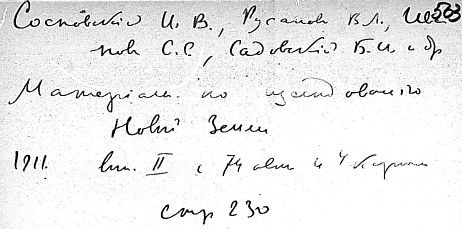 Сосновский И. В., Русанов В. Л., Ива 503
нов С. С., Садовский Б. И. и др
Материалы по исследованию
Новой Земли
1911. вып. II с 74 и 4 картами
стр 230